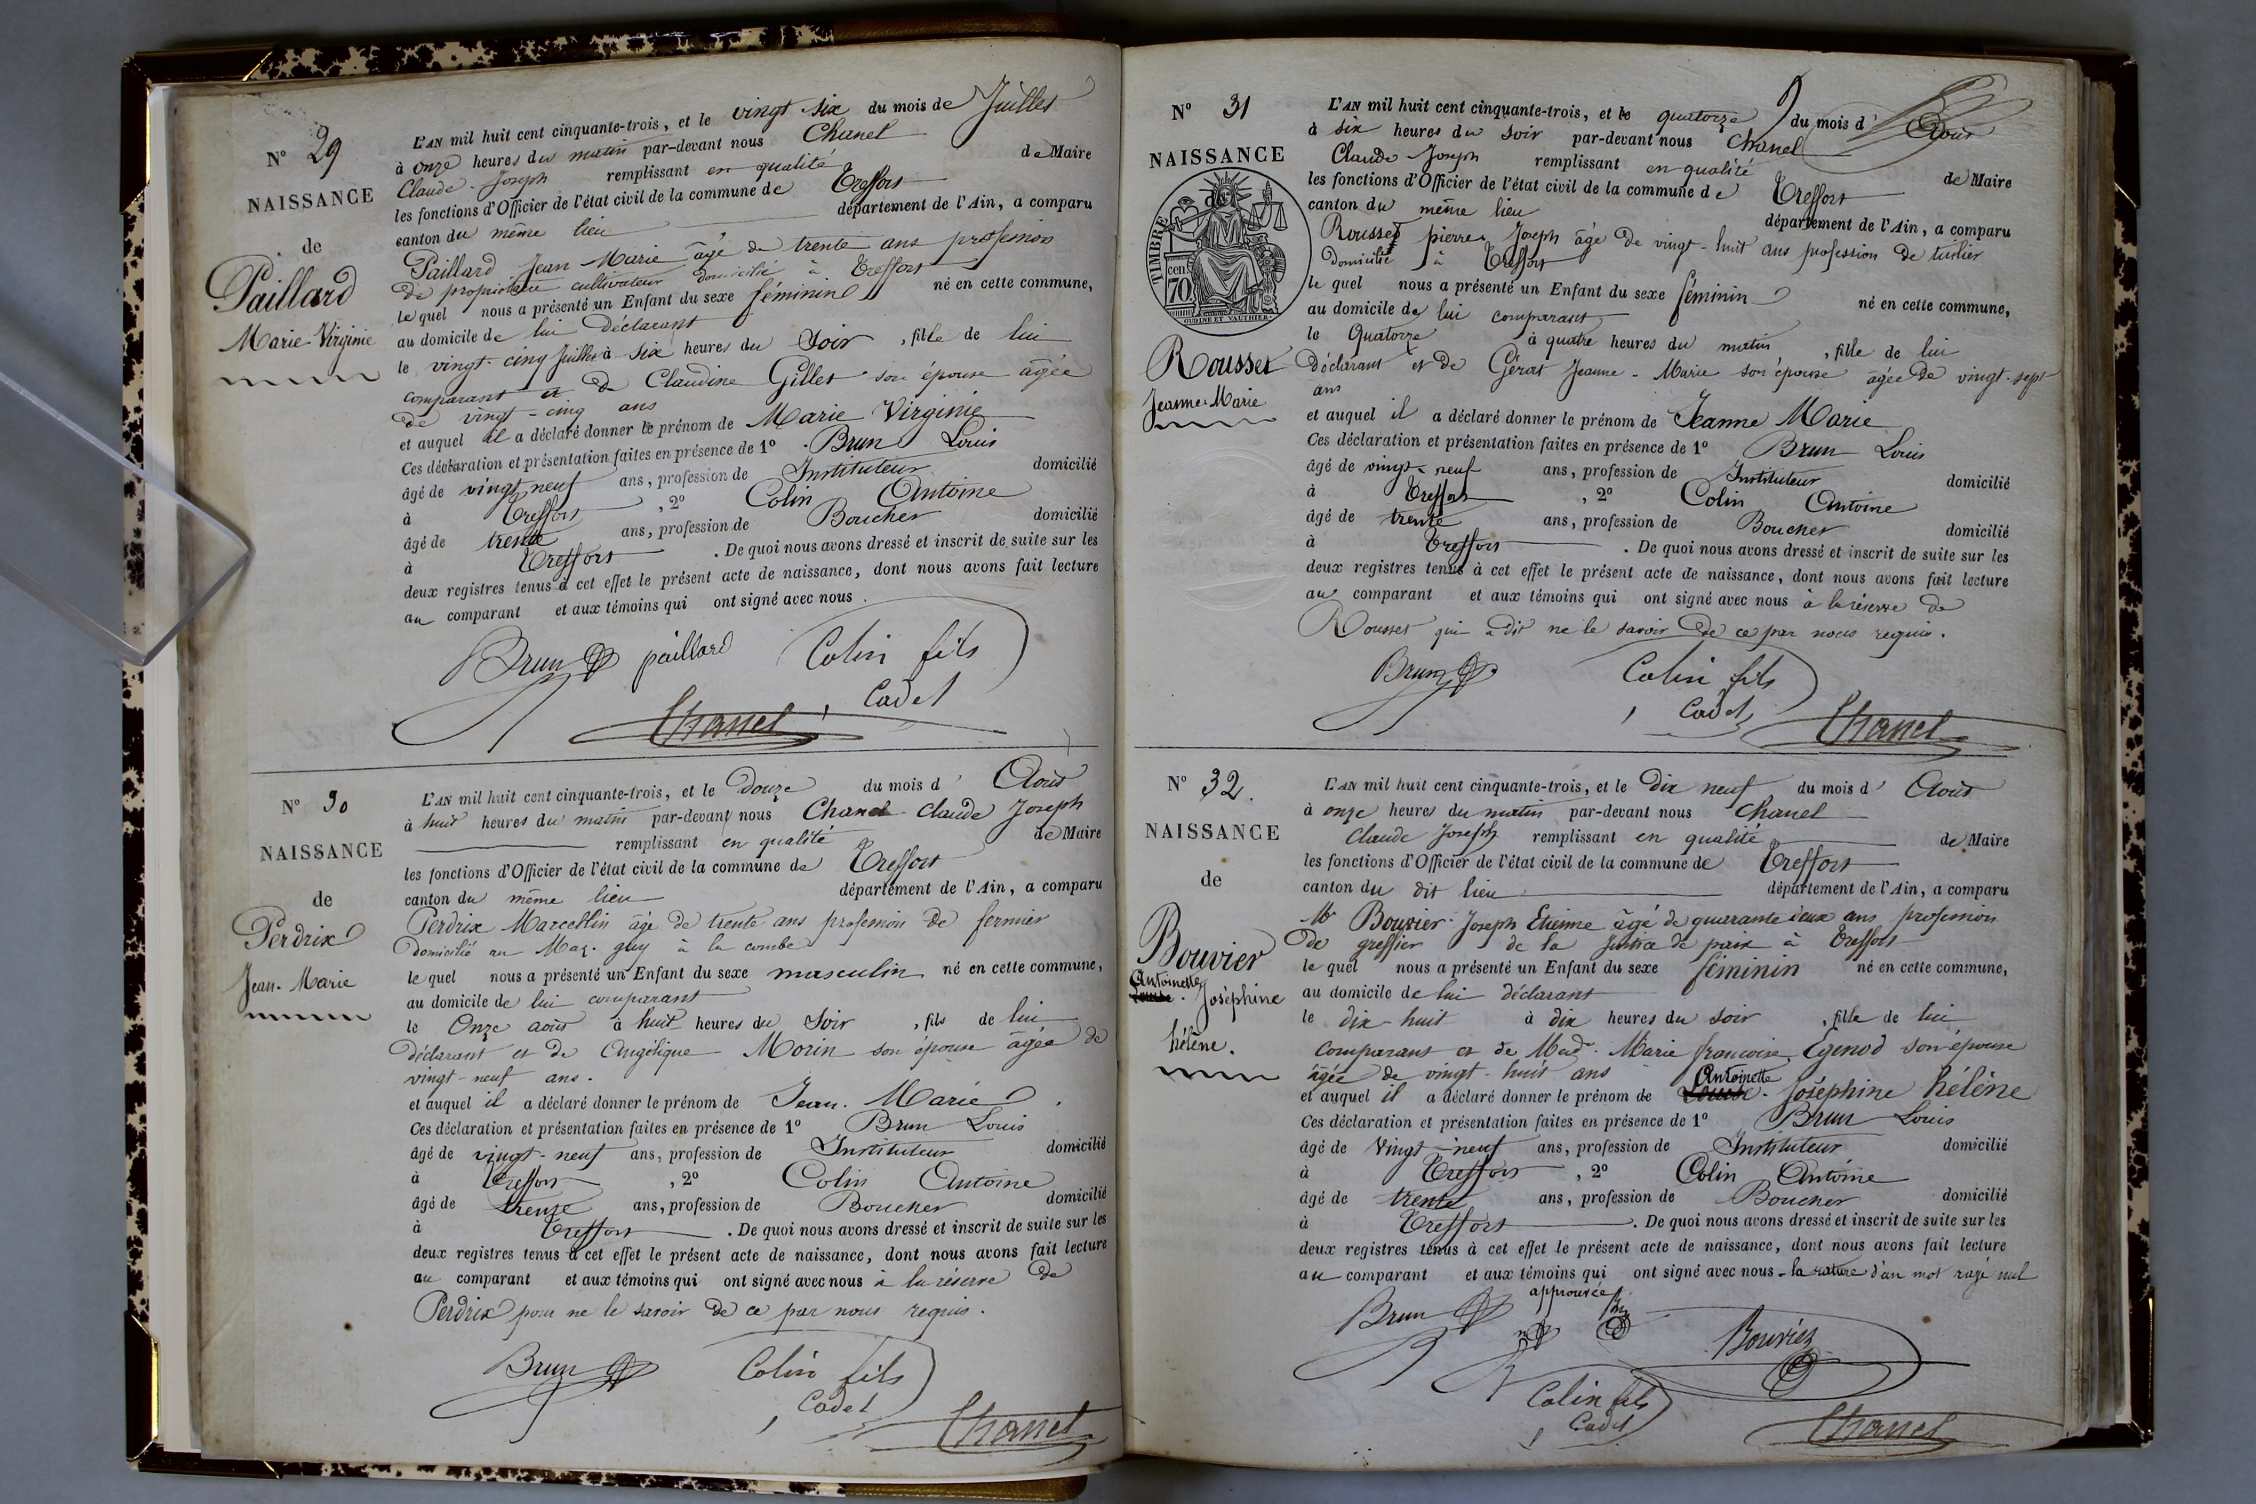 N° 29
NAISSANCE
de
Paillard
Marie-Virginie
L'AN mil huit cent cinquante-trois, et le vingt six du mois de Juillet
à onze heures du matin par-devant nous Chanel
Claude-Joseph remplissant en qualité de Maire
les fonctions d'Officier de l'état civil de la commune de Treffort
canton du même lieu département de l'Ain, a comparu
Paillard Jean Marie âgé de trente ans profession
de propriétaire cultivateur domicilié à Treffort
le quel nous a présenté un Enfant du sexe féminin né en cette commune,
au domicile de lui déclarant
le vingt-cinq Juillet à six heures du soir, fille de lui
comparant et de Claudine Gillet son épouse âgée
de vingt-cinq ans
et auquel il a déclaré donner le prénom de Marie Virginie
Ces déclaration et présentation faites en présence de 1° Brun Louis
âgé de vingt neuf ans, profession de Instituteur domicilié
à Treffort, 2° Colin Antoine
âgé de trente ans, profession de Boucher domicilié
à Treffort. De quoi nous avons dressé et inscrit de suite sur les
deux registres tenus à cet effet le présent acte de naissance, dont nous avons fait lecture
au comparant et aux témoins qui ont signé avec nous.
Brun paillard Colin fils
Cadet
Chanel
N° 30
NAISSANCE
de
Perdrix
Jean-Marie
L'AN mil huit cent cinquante-trois, et le douze du mois d' Août
à huit heures du matin par-devant nous Chanel Claude Joseph
remplissant en qualité de Maire
les fonctions d'Officier de l'état civil de la commune de Treffort
canton du même lieu département de l'Ain, a comparu
Perdrix Marcellin âgé de trente ans profession de fermier
domicilié au Maz. guy à la combe
le quel nous a présenté un Enfant du sexe masculin né en cette commune,
au domicile de lui comparant
le Onze août à huit heures du soir, fils de lui
déclarant et de Angélique Morin son épouse âgée de
vingt-neuf ans.
et auquel il a déclaré donner le prénom de Jean-Marie.
Ces déclaration et présentation faites en présence de 1° Brun Louis
âgé de vingt-neuf ans, profession de Instituteur domicilié
à Treffort, 2° Colin Antoine
âgé de trente ans, profession de Boucher domicilié
à Treffort. De quoi nous avons dressé et inscrit de suite sur les
deux registres tenus à cet effet le présent acte de naissance, dont nous avons fait lecture
au comparant et aux témoins qui ont signé avec nous à la réserve de
Perdrix pour ne le savoir de ce par nous requis.
Brun Colin fils
Cadet
Chanel
N° 31
NAISSANCE
de
TIMBRE
70 cen
OUDINE ET VAUTHIER
Rousset
Jeanne-Marie
L'AN mil huit cent cinquante-trois, et le quatorze du mois d' Août
à six heures du soir par-devant nous Chanel
Claude Joseph remplissant en qualité de Maire
les fonctions d'Officier de l'état civil de la commune de Treffort
canton du même lieu département de l'Ain, a comparu
Rousset pierre Joseph âgé de vingt-huit ans profession de tuilier
domicilié à Treffort
le quel nous a présenté un Enfant du sexe féminin né en cette commune,
au domicile de lui comparant
le Quatorze à quatre heures du matin, fille de lui
déclarant et de Gérat Jeanne-Marie son épouse âgée de vingt-sept
ans
et auquel il a déclaré donner le prénom de Jeanne Marie
Ces déclaration et présentation faites en présence de 1° Brun Louis
âgé de vingt-neuf ans, profession de Instituteur domicilié
à Treffort, 2° Colin Antoine
âgé de trente ans, profession de Boucher domicilié
à Treffort. De quoi nous avons dressé et inscrit de suite sur les
deux registres tenus à cet effet le présent acte de naissance, dont nous avons fait lecture
au comparant et aux témoins qui ont signé avec nous à la réserve de
Rousset qui a dit ne le savoir de ce par nous requis.
Brun Colin fils
Cadet
Chanel
N° 32.
NAISSANCE
de
Bouvier
Antoinette
Joséphine
hélène.
L'AN mil huit cent cinquante-trois, et le dix neuf du mois d' Août
à onze heures du matin par-devant nous Chanel
Claude Joseph remplissant en qualité de Maire
les fonctions d'Officier de l'état civil de la commune de Treffort
canton du dit lieu département de l'Ain, a comparu
Mr Bouvier Joseph Etienne âgé de quarante deux ans profession
de greffier de la Justice de paix à Treffort
le quel nous a présenté un Enfant du sexe féminin né en cette commune,
au domicile de lui déclarant
le dix-huit à dix heures du soir, fille de lui
comparant et de Made Marie francoise Egenod son épouse
âgée de vingt-huit ans
Antoinette
et auquel il a déclaré donner le prénom de Louise-Joséphine hélène
Ces déclaration et présentation faites en présence de 1° Brun Louis
âgé de Vingt-neuf ans, profession de Instituteur domicilié
à Treffort, 2° Colin Antoine
âgé de trente ans, profession de Boucher domicilié
à Treffort. De quoi nous avons dressé et inscrit de suite sur les
deux registres tenus à cet effet le présent acte de naissance, dont nous avons fait lecture
au comparant et aux témoins qui ont signé avec nous - la rature d'un mot rayé nul
approuvée
Brun
Bouvier
Colin fils
Cadet
Chanel